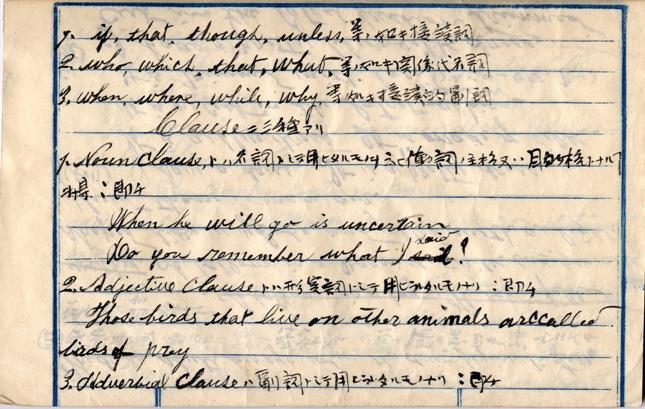 1. if, that, though, unless, 等ノ如キ接続詞
2. who, which, that, what, 等ノ如キ関係代名詞
3. when, where, while, why, 等ノ如キ接続的副詞
Clause ニ三種アリ
1. Noun Clause, トハ名詞トシテ用ヒラルモノニシテ動詞ノ主格又ハ目的格トナルヿ
ヲ得 ; 即チ
When he will go is uncertain
Do you remember what I said?
2. Adjective Clause トハ形容詞トシテ用ヒラルモノナリ ; 即チ
Those birds that live on other animals are called
birds of prey
3. Adverbial Clause ハ副詞トシテ用ヒラルモノナリ ; 即チ